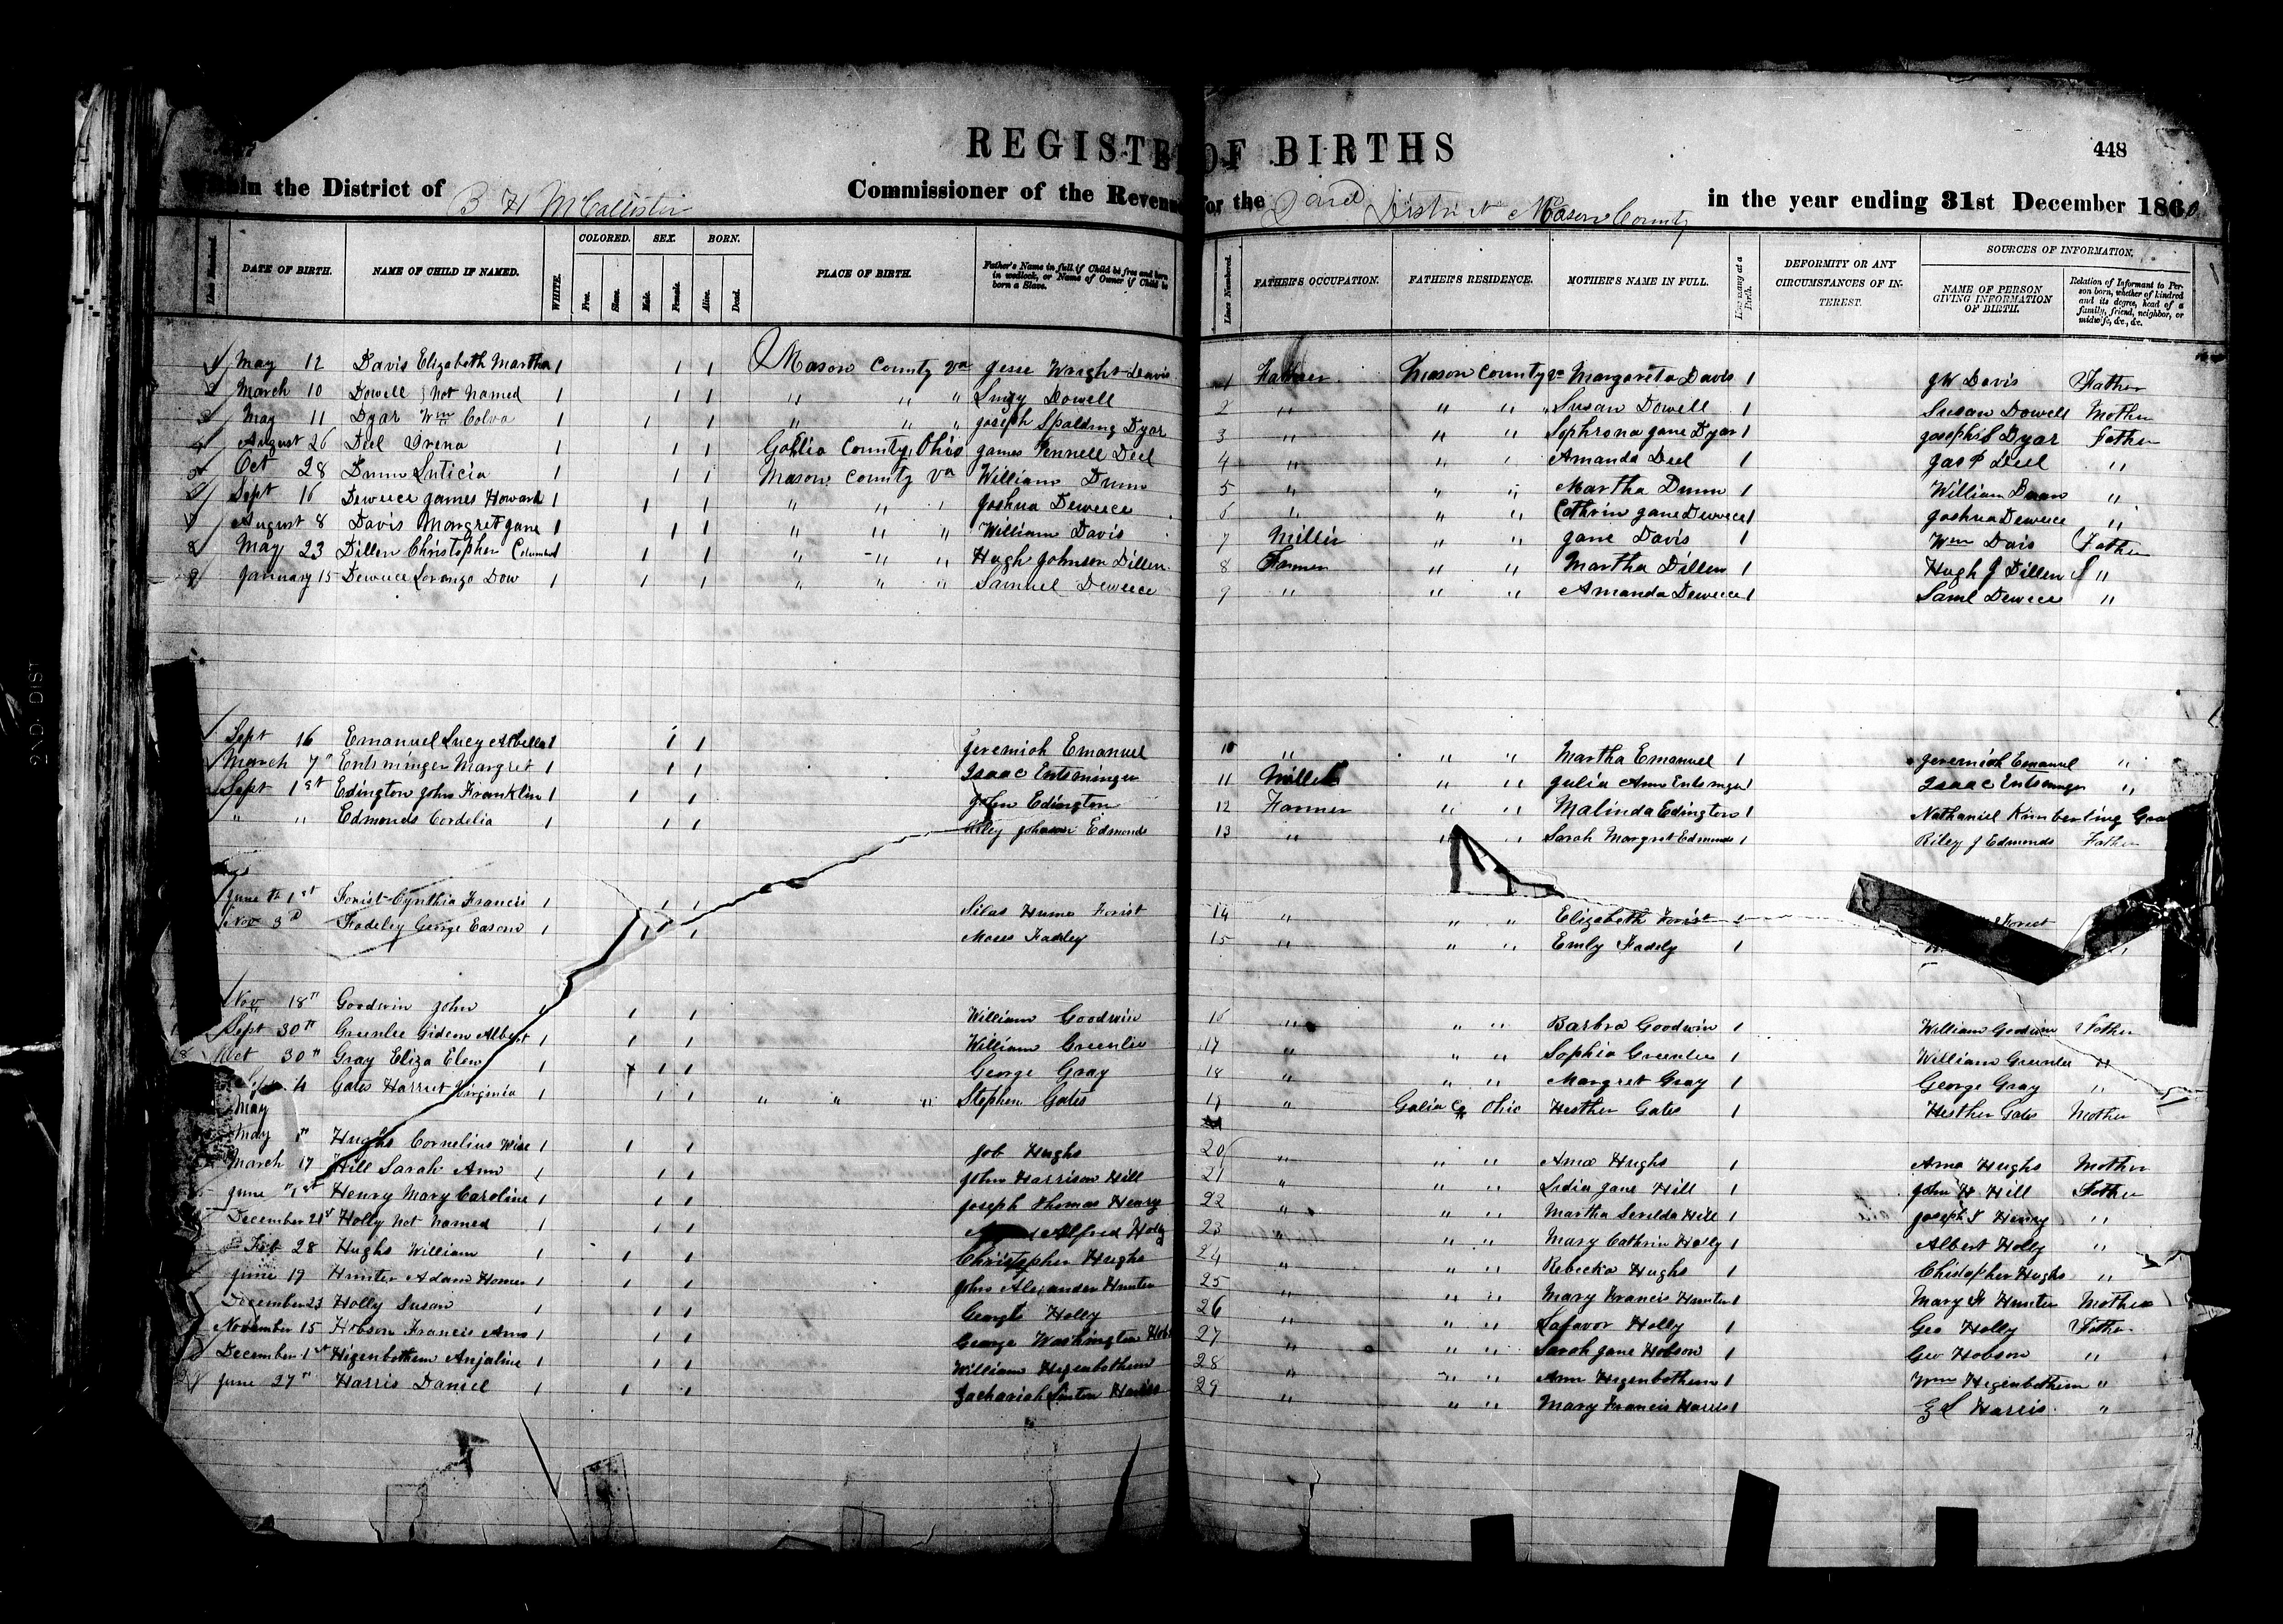 REGISTER OF BIRTHS
448
Within the District of B H McCallister Commissioner of the Revenue for the District Mason County in the year ending 31st December 1860
2ND. DIST
Line Numbered. DATE OF BIRTH. NAME OF CHILD IF NAMED. WHITE. COLORED. Free. Slave. SEX. Male. Female. BORN. Alive. Dead. PLACE OF BIRTH. Father's Name in full if Child be free and born in wedlock, or Name of Owner if Child be born a Slave. Lines Numbered. FATHER'S OCCUPATION. FATHER'S RESIDENCE. MOTHER'S NAME IN FULL. How many at a Birth. DEFORMITY OR ANY CIRCUMSTANCES OF INTEREST. SOURCES OF INFORMATION. NAME OF PERSON GIVING INFORMATION OF BIRTH. Relation of Informant to Person born, whether of kindred and its degree, head of a family, friend, neighbor, or midwife, &c., &c.
1 May 12 Davis Elizabeth Martha 1 1 1 Mason County Va Jesse Wright Davis 1 Farmer Mason County Va Margareta Davis 1 J W Davis Father
2 March 10 Dowell Not Named 1 1 1 " " " Dowell 2 " " " Susan Dowell 1 Susan Dowell Mother
3 May 11 Dyar Wm Colva 1 1 1 " " " Joseph Spalding Dyar 3 " " " Sophrona Jane Dyar 1 Joseph S Dyar Father
4 August 26 Deel Irena 1 1 1 Gallia County, Ohio James Pennell Deel 4 " " " Amanda Deel 1 Jas P Deel "
5 Oct 28 Dunn Luticia 1 1 1 Mason County Va William Dunn 5 " " " Martha Dunn 1 William Dunn "
6 Sept 16 Deweece James Howard 1 1 1 " " " Joshua Deweece 6 " " " Cathrin Jane Deweece 1 Joshua Deweece "
7 August 8 Davis Margret Jane 1 1 1 " " " William Davis 7 Miller " " Jane Davis 1 Wm Davis Father
8 May 23 Dillen Christopher Columbus 1 1 1 " " " Hugh Johnson Dillen 8 Farmer " " Martha Dillen 1 Hugh J Dillen "
9 January 15 Deweece Lorenzo Dow 1 1 1 " " " Samuel Deweece 9 " " " Amanda Deweece 1 Saml Deweece "
Sept 16 Emanuel Lucy Abella 1 1 1 Jeremiah Emanuel 10 " " " Martha Emanuel 1 Jeremiah Emanuel "
March 7" Entsminger Margret 1 1 1 Isaac Entsminger 11 Miller " " Julia Ann Entsminger 1 Isaac Entsminger "
Sept 1st Edington John Franklin 1 1 1 John Edington 12 Farmer " " Malinda Edington 1 Nathaniel Kimberling
" " Edmonds Cordelia 1 1 1 Riley Johnson Edmonds 13 " " " Sarah Margret Edmonds 1 Riley J Edmonds Father
June 1st Forist Cynthia Francis 1 1 1 Silas Hume Forist 14 " " " Elizabeth Forist 1 Forist
Nov 3d Fadeley George Eason 1 1 1 Moses Fadley 15 " " " Emily Fadely 1 "
Nov 18th Goodwin John 1 1 1 William Goodwin 16 " " " Barbra Goodwin 1 William Goodwin Father
Sept 30th Greenlee Gideon Albert 1 1 1 William Greenlee 17 " " " Sophia Greenlee 1 William Greenlee "
18 Oct 30th Gray Eliza Elen 1 1 1 George Gray 18 " " " Margret Gray 1 George Gray "
Sept 4 Gates Harriet Virginia 1 1 1 " " " Stephen Gates 19 " Galia Co Ohio Hesther Gates 1 Hesther Gates Mother
May
May Hughs Cornelius Wise 1 1 1 Job Hughs 20 " " " Ama Hughs 1 Ama Hughs Mother
March 17 Hill Sarah Ann 1 1 1 John Harrison Hill 21 " " " Lidia Jane Hill 1 John H Hill Father
June 1st Henry Mary Caroline 1 1 1 Joseph Thomas Henry 22 " " " Martha Serilda Hill 1 Joseph T Henry "
December 21st Holly Not Named 1 1 1 Alfred Holly 23 " " " Mary Cathrin Holly 1 Albert Holly "
Feb 28 Hughs William 1 1 1 Christopher Hughs 24 " " " Rebecka Hughs 1 Chistopher Hughs "
June 19 Hunter Adam Homer 1 1 1 John Alexander Hunter 25 " " " Mary Francis Hunter 1 Mary F Hunter Mother
December 23 Holly Susan 1 1 1 George Holly 26 " " " Lafavor Holly 1 Geo Holly Father
November 15 Hobson Francis Ann 1 1 1 George Washington 27 " " " Sarah Jane Hobson 1 Geo Hobson "
December 1st Higenbothem Anjaline 1 1 1 William Higenbothem 28 " " " Ann Higenbothem 1 Wm Higenbothem "
June 27th Harris Daniel 1 1 1 Zachariah Linton Harris 29 " " " Mary Francis Harris 1 Z L Harris "